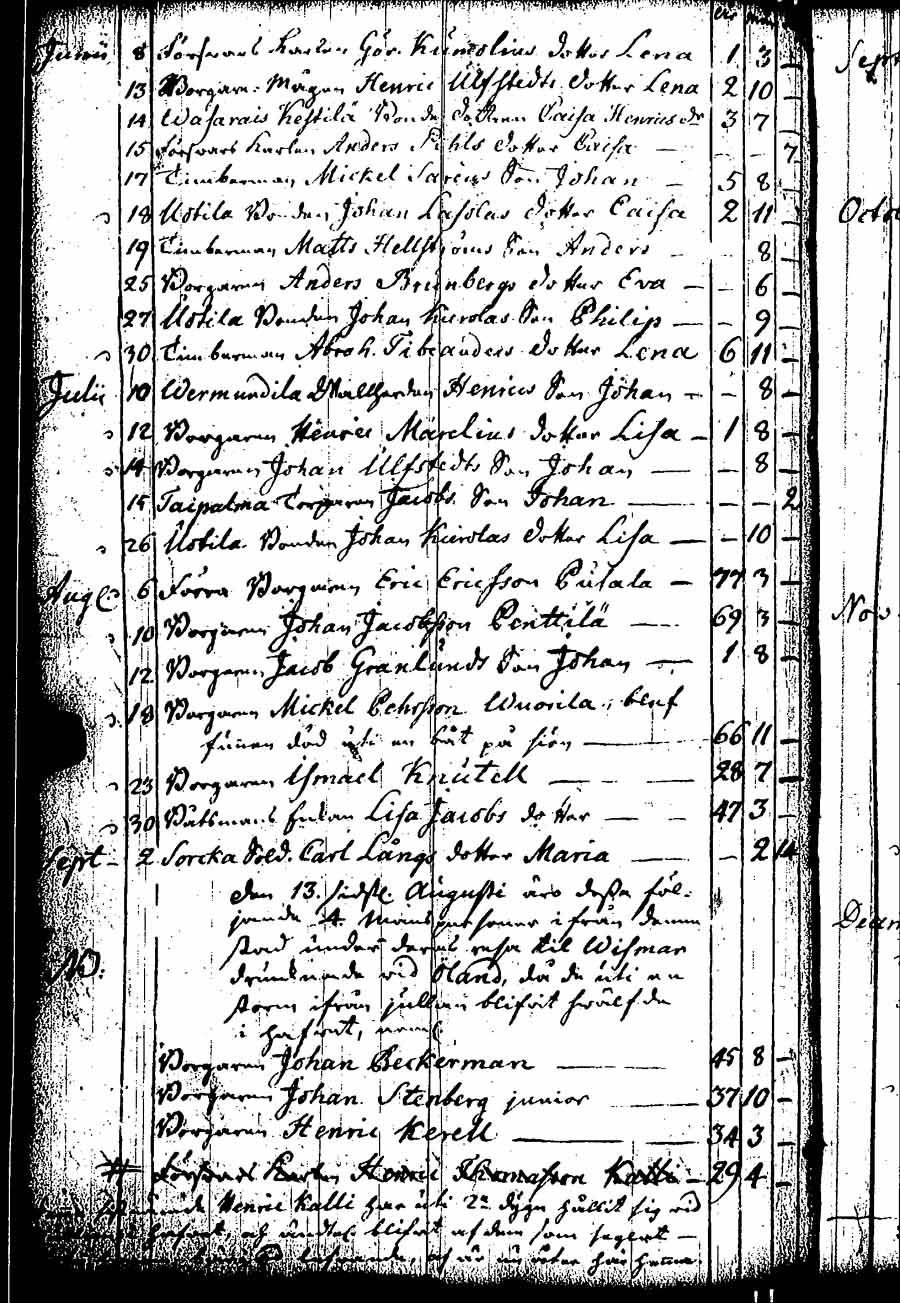 Sept
Junii 8 Försvars Karlen Gör. dotter Lena 1 3 -
13 Borgare Mågen Henric Ulfstedts dotter Lena 2 10 -
14 Wasarais Kestilä Bonde dottren Caisa Henrics dr 3 7 -
15 Försvars Karlen Anders Pihls dotter Caisa - - - 7
17 Timberman Mickel Son Johan - 5 8 -
18 Uotila Bonden Johan dotter Caisa 2 11 -
Octo
19 Timberman Matts Hellströms Son Anders - - 8 -
25 Borgaren Anders Brunbergs dotter Eva - - 6 -
27 Uotila Bonden Johan Kierolas Son Philip - - 9 -
30 Timberman Abrah. dotter Lena 6 11 -
Julii 10 Wermundila Henrics Son Johan - - 8 -
12 Borgaren Henric Marelius dotter Lisa - 1 8 -
14 Borgaren Johan Ulfstedts Son Johan - - 8 -
15 Taipalma Jacobs Son Johan - - - 2
26 Uotila Bonden Johan Kierolas dotter Lisa - - 10 -
Aug 6 Förra Borgaren Eric Ericsson Pusala - 77 3 -
Nov.
10 Borgaren Johan Jacobsson Penttilä - 69 3 -
12 Borgaren Jacob Granlunds Son Johan - 1 8 -
18 Borgaren Mickel Pehrsson Wuorila, blef
funnen död uti en båt på siön - 66 11 -
23 Borgaren Ismael Knutell - 28 7 -
30 Båtsmans Enkan Lisa Jacobs dotter - 47 3 -
Sept - 2 Sorcka Sold. Carl Långs dotter Maria - - 2 14
den 13. sidstl. Augusti äro dessa föl-
jande 4 Manspersoner ifrån denna
Decem
stad under deras resa til Wismar
NB: drunknade vid Öland, då de uti en
storm ifrån jullan blifvit hwälfde
i hafvet, neml.
Borgaren Johan Beckerman - 45 8 -
Borgaren Johan Stenberg junior 37 10 -
Borgaren Henric Kerell - 34 3 -
# Försvars Karlen Henric Thomasson Kalli - 29 4 -
Henric Kalli har uti 2ne dygn hållit sig vid
och blifvit af dem som seglat -
här hemma.